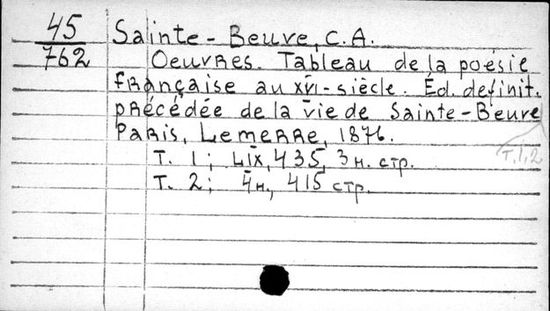 45 Sainte-Beuve, C.A.
762 Oeuvres. Tableau de la poésie
française au XVI-siècle. Éd. définit.
précédée de la vie de Sainte-Beuve
Paris, Lemerre, 1876.
T. 1, 2
T. 1; LIX, 435, 3 н. стр.
T. 2; 4 н., 415 стр.